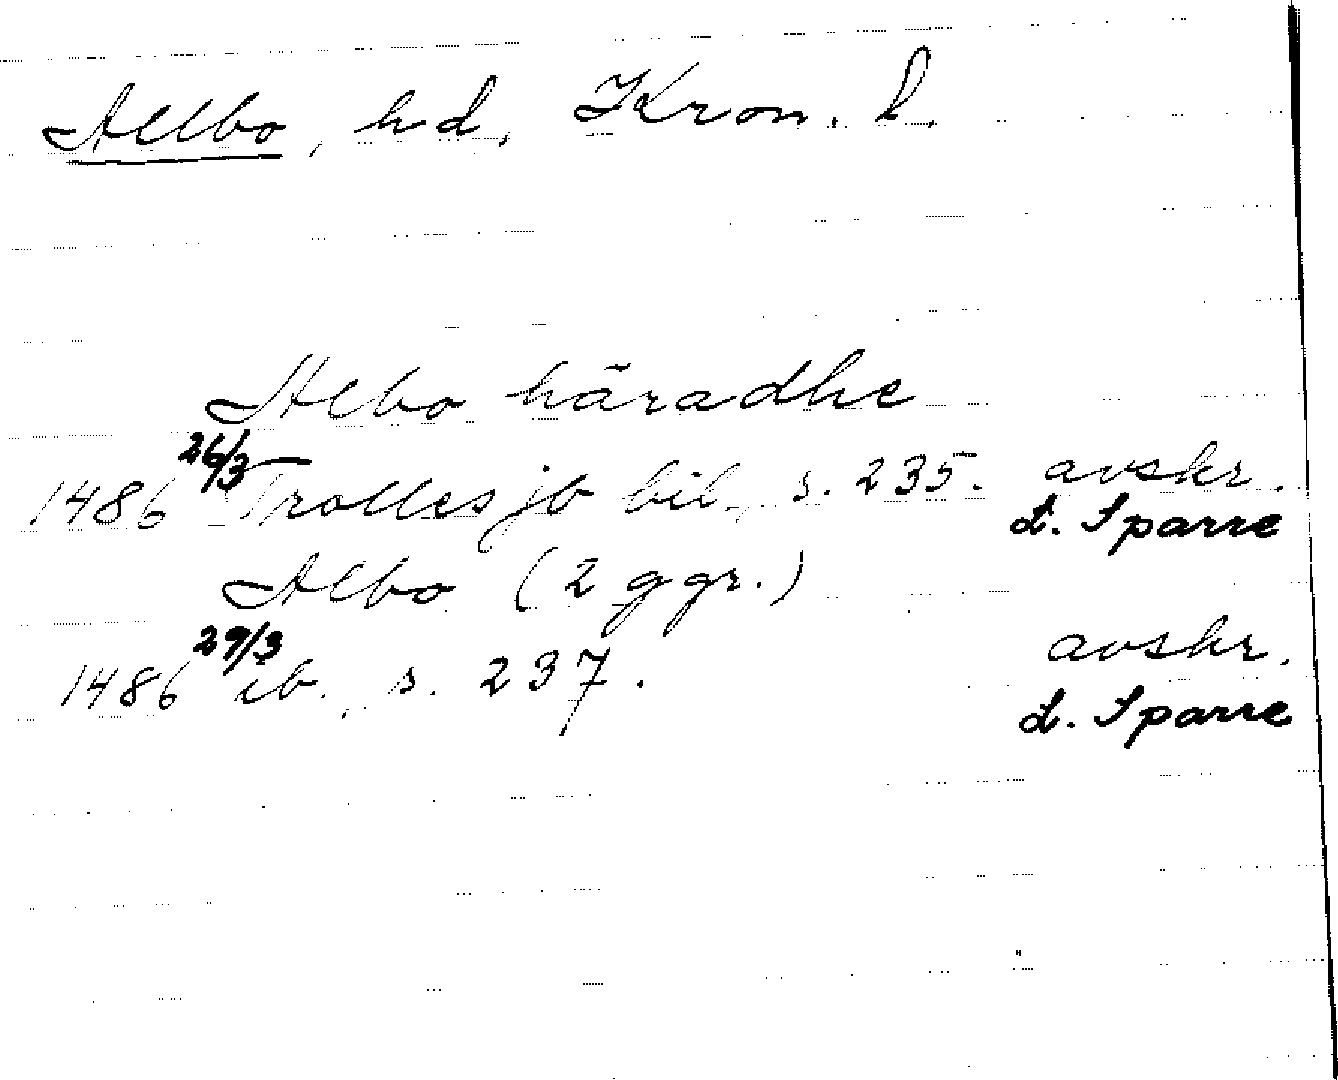 Allbo, hd, Kron. l.
Albo häradhe
1486 26/3 Trolles jb bil., s. 235. avskr.
L. Sparre
Albo (2 ggr.)
1486 29/3 ib., s. 237. avskr.
L. Sparre